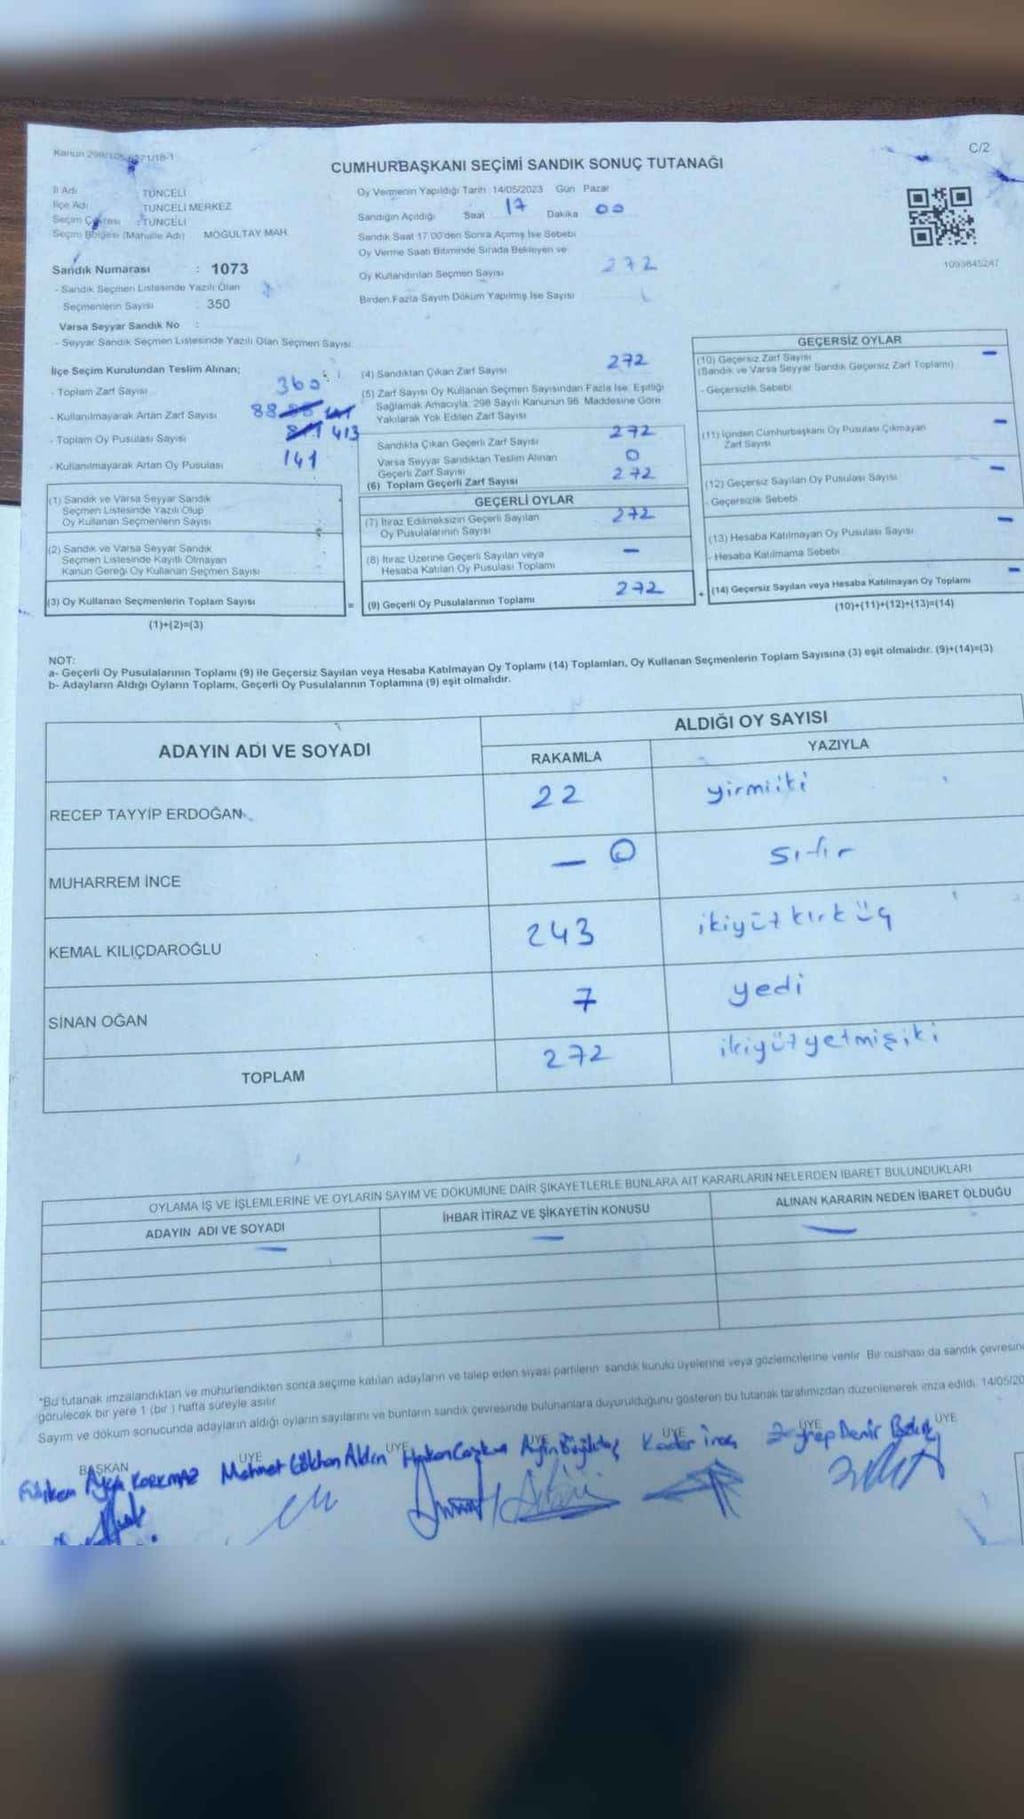 Kanun 298/105
C/2
CUMHURBAŞKANI SEÇİMİ SANDIK SONUÇ TUTANAĞI
İl Adı TUNCELİ
İlçe Adı TUNCELİ MERKEZ
Seçim Çevresi : TUNCELİ
Seçim Bölgesi (Mahalle Adı) MOĞULTAY MAH.
Oy Vermenin Yapıldığı Tarih : 14/05/2023 Gün Pazar
Sandığın Açıldığı Saat 17 Dakika 00
Sandık Saat 17:00'den Sonra Açımış İse Sebebi
Oy Verme Saati Bitiminde Sırada Bekleyen ve
Oy Kullandırılan Seçmen Sayısı 272
Birden Fazla Sayım Döküm Yapılmış İse Sayısı
1093845247
Sandık Numarası : 1073
- Sandık Seçmen Listesinde Yazılı Olan
Seçmenlerin Sayısı : 350
Varsa Seyyar Sandık No :
- Seyyar Sandık Seçmen Listesinde Yazılı Olan Seçmen Sayısı
İlçe Seçim Kurulundan Teslim Alınan;
- Toplam Zarf Sayısı 360
- Kullanılmayarak Artan Zarf Sayısı 88
- Toplam Oy Pusulası Sayısı 413
- Kullanılmayarak Artan Oy Pusulası 141
(1) Sandık ve Varsa Seyyar Sandık
Seçmen Listesinde Yazılı Olup
Oy Kullanan Seçmenlerin Sayısı
(2) Sandık ve Varsa Seyyar Sandık
Seçmen Listesinde Kayıtlı Olmayan
Kanun Gereği Oy Kullanan Seçmen Sayısı
(3) Oy Kullanan Seçmenlerin Toplam Sayısı
(1)+(2)=(3)
(4) Sandıktan Çıkan Zarf Sayısı 272
(5) Zarf Sayısı Oy Kullanan Seçmen Sayısından Fazla İse, Eşitliği
Sağlamak Amacıyla, 298 Sayılı Kanunun 98. Maddesine Göre
Yakılarak Yok Edilen Zarf Sayısı
Sandıkta Çıkan Geçerli Zarf Sayısı 272
Varsa Seyyar Sandıktan Teslim Alınan
Geçerli Zarf Sayısı 0
(6) Toplam Geçerli Zarf Sayısı 272
GEÇERLİ OYLAR
(7) İtiraz Edilmeksizin Geçerli Sayılan
Oy Pusulalarının Sayısı 272
(8) İtiraz Üzerine Geçerli Sayılan veya
Hesaba Katılan Oy Pusulası Toplamı —
= (9) Geçerli Oy Pusulalarının Toplamı 272 +
GEÇERSİZ OYLAR
(10) Geçersiz Zarf Sayısı —
(Sandık ve Varsa Seyyar Sandık Geçersiz Zarf Toplamı)
- Geçersizlik Sebebi
(11) İçinden Cumhurbaşkanı Oy Pusulası Çıkmayan —
Zarf Sayısı
(12) Geçersiz Sayılan Oy Pusulası Sayısı —
- Geçersizlik Sebebi
(13) Hesaba Katılmayan Oy Pusulası Sayısı —
- Hesaba Katılmama Sebebi
(14) Geçersiz Sayılan veya Hesaba Katılmayan Oy Toplamı —
(10)+(11)+(12)+(13)=(14)
NOT:
a- Geçerli Oy Pusulalarının Toplamı (9) ile Geçersiz Sayılan veya Hesaba Katılmayan Oy Toplamı (14) Toplamları, Oy Kullanan Seçmenlerin Toplam Sayısına (3) eşit olmalıdır. (9)+(14)=(3)
b- Adayların Aldığı Oyların Toplamı, Geçerli Oy Pusulalarının Toplamına (9) eşit olmalıdır.
ADAYIN ADI VE SOYADI
ALDIĞI OY SAYISI
RAKAMLA YAZIYLA
RECEP TAYYİP ERDOĞAN 22 yirmiiki
MUHARREM İNCE — 0 sıfır
KEMAL KILIÇDAROĞLU 243 ikiyüzkırküç
SİNAN OĞAN 7 yedi
TOPLAM 272 ikiyüzyetmişiki
OYLAMA İŞ VE İŞLEMLERİNE VE OYLARIN SAYIM VE DÖKÜMÜNE DAİR ŞİKAYETLERLE BUNLARA AİT KARARLARIN NELERDEN İBARET BULUNDUKLARI
ADAYIN ADI VE SOYADI İHBAR İTİRAZ VE ŞİKAYETİN KONUSU ALINAN KARARIN NEDEN İBARET OLDUĞU
— — —
*Bu tutanak imzalandıktan ve mühürlendikten sonra seçime katılan adayların ve talep eden siyasi partilerin sandık kurulu üyelerine veya gözlemcilerine verilir. Bir nüshası da sandık çevresinde
görülecek bir yere 1 (bir) hafta süreyle asılır.
Sayım ve döküm sonucunda adayların aldığı oyların sayılarını ve bunların sandık çevresinde bulunanlara duyurulduğunu gösteren bu tutanak tarafımızdan düzenlenerek imza edildi. 14/05/20
BAŞKAN ÜYE ÜYE ÜYE ÜYE ÜYE ÜYE
KORKMAZ Mehmet Gökhan Aldın Hakan Coşkun Kader Zeynep Demir